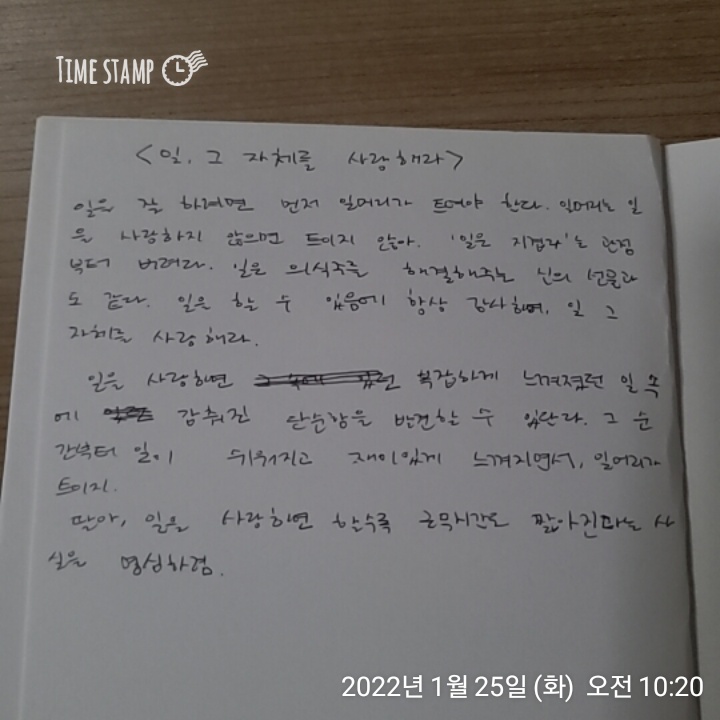 TIME STAMP
<일, 그 자체를 사랑해라>
일을 잘 하려면 먼저 일머리가 트여야 한다. 일머리는 일
을 사랑하지 않으면 트이지 않아. '일은 지겹다'는 관점
부터 버려라. 일은 의식주를 해결해주는 신의 선물과
도 같다. 일을 할 수 있음에 항상 감사하며, 일 그
자체를 사랑해라.
일을 사랑하면 복잡하게 느껴졌던 일 속
에 감춰진 단순함을 발견할 수 있단다. 그 순
간부터 일이 쉬워지고 재미있게 느껴지면서, 일머리가
트이지.
딸아, 일을 사랑하면 할수록 근무시간도 짧아진다는 사
실을 명심하렴.
2022년 1월 25일 (화) 오전 10:20